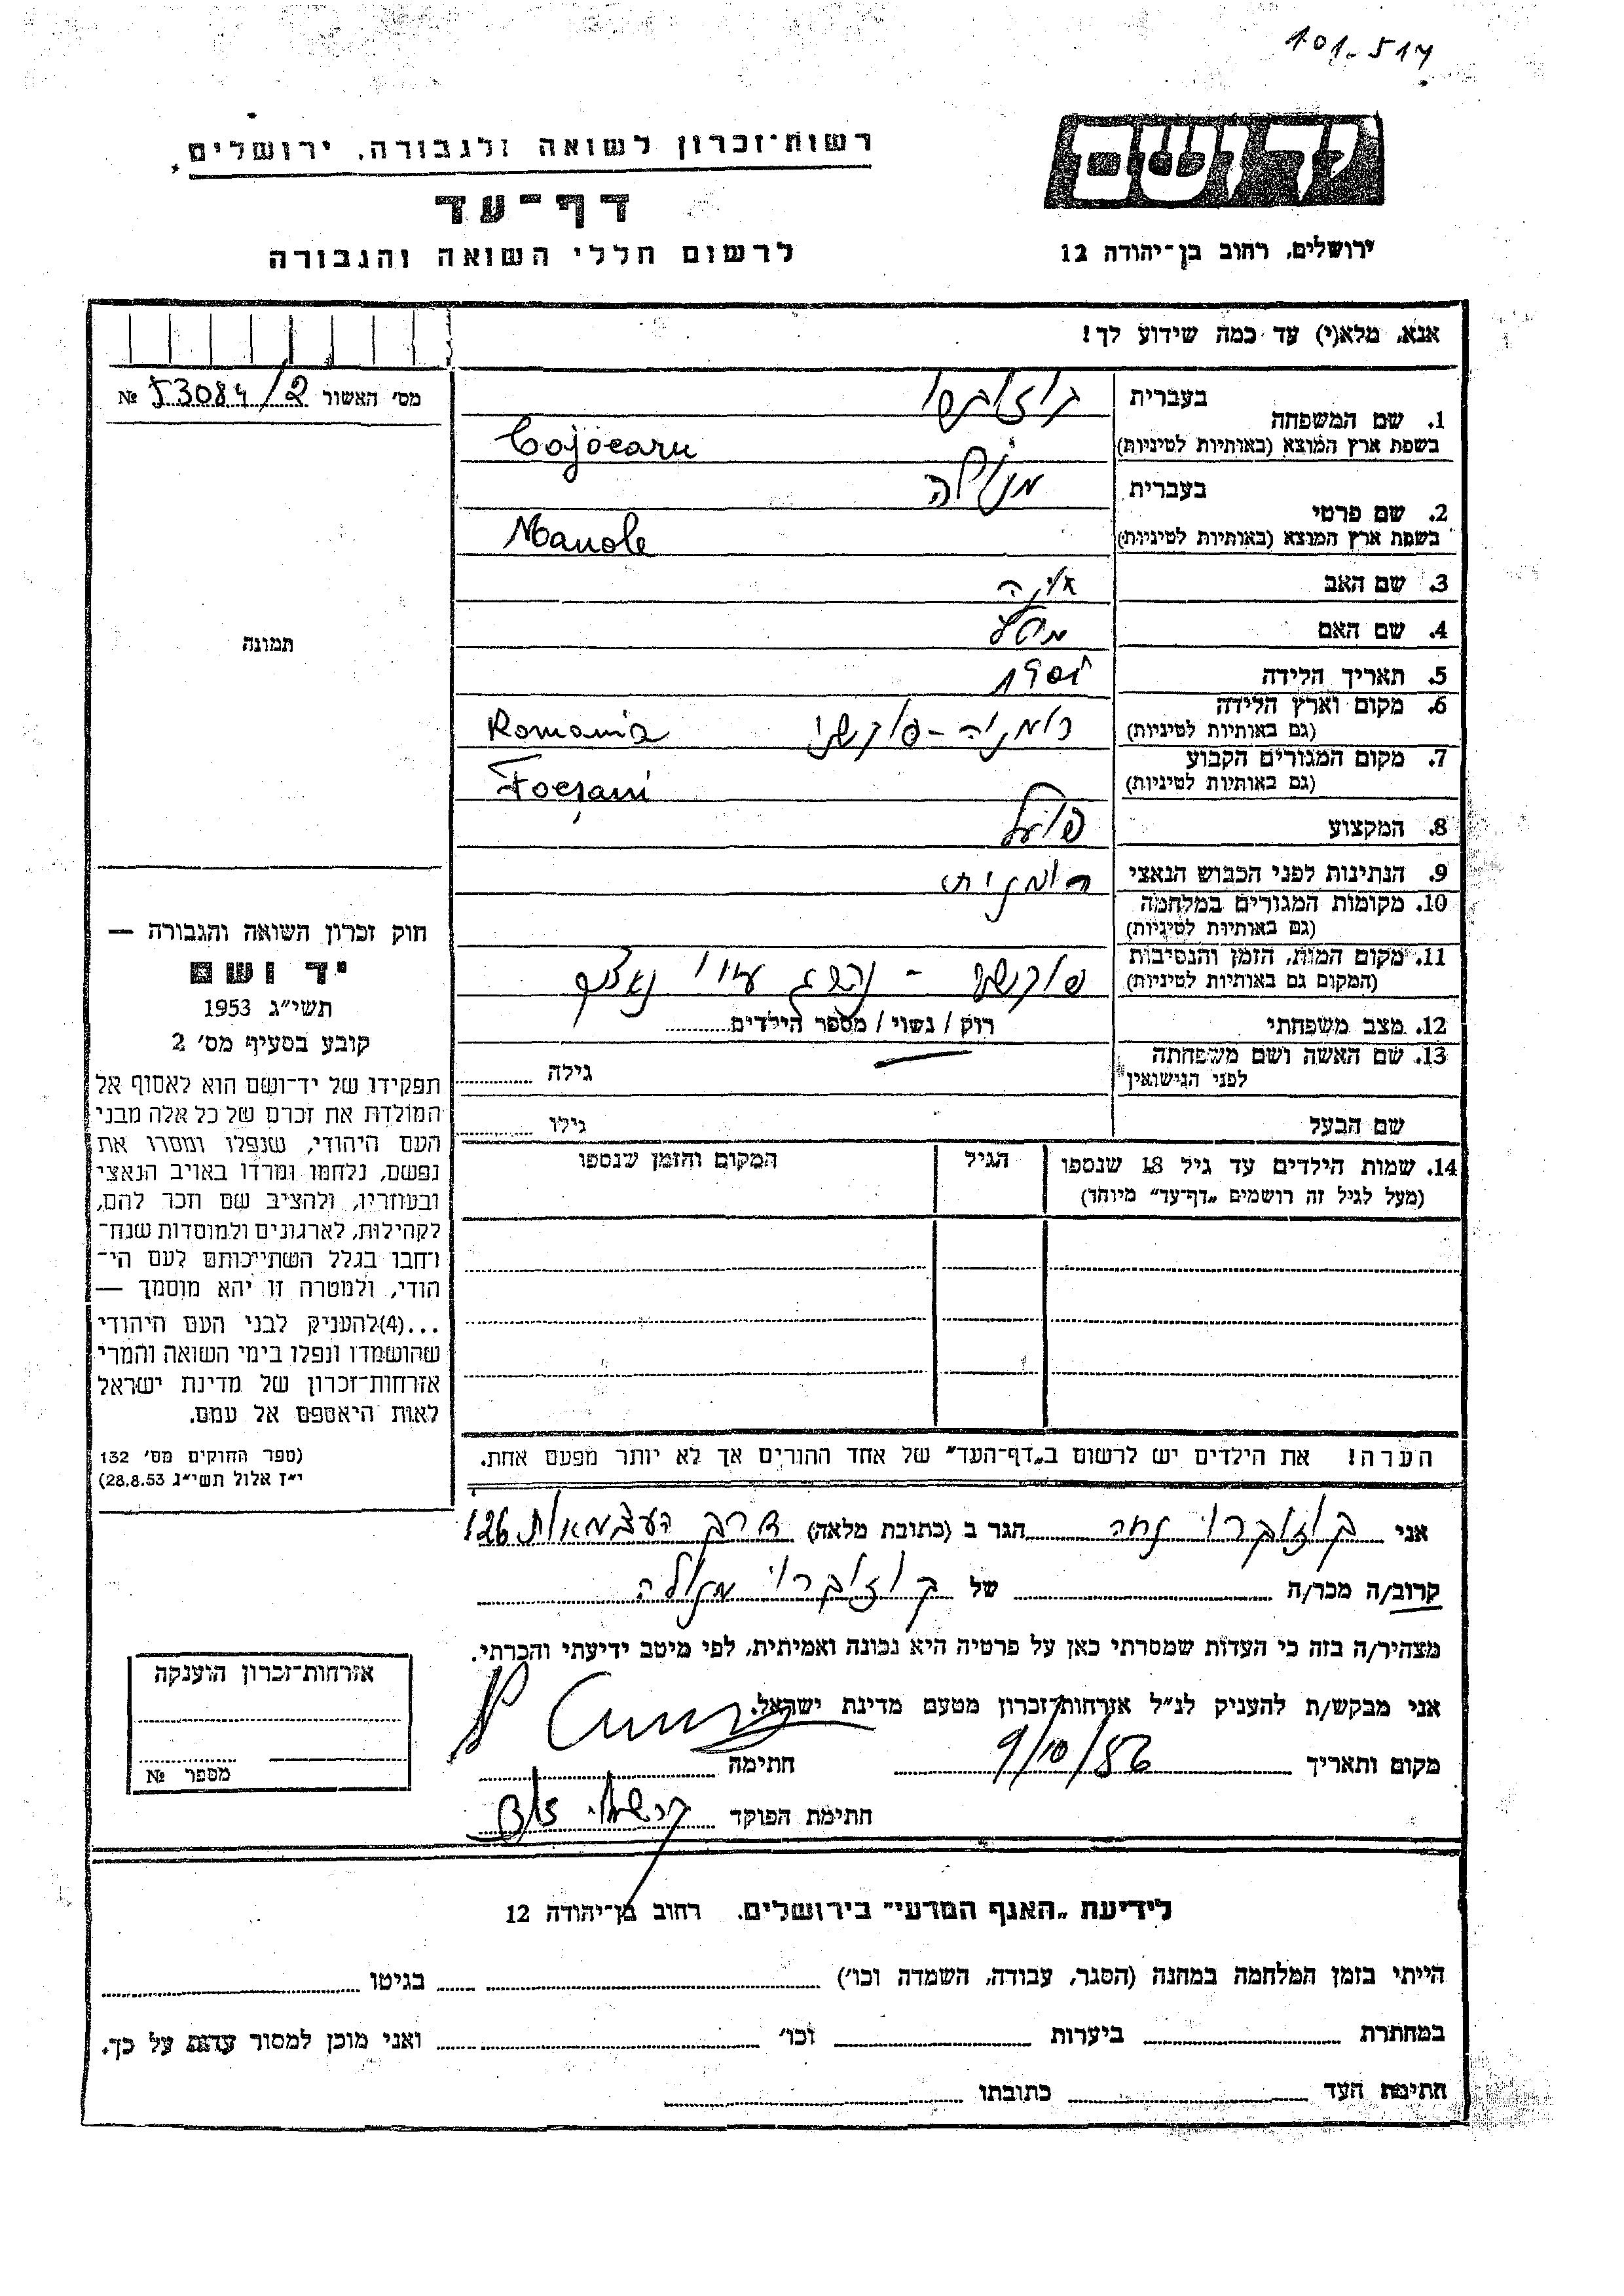 101.517
רשות־זכרון לשואה ולגבורה, ירושלים
יד ושם
דף־עד
לרשום חללי השואה והגבורה
ירושלים, רחוב בן־יהודה 12
אנא, מלא(י) עד כמה שידוע לך!
מס׳ האשור № 53084/2
1. שם המשפחה
בעברית
בשפת ארץ המוצא (באותיות לטיניות) Cojocaru
2. שם פרטי
בעברית מנולה
בשפת ארץ המוצא (באותיות לטיניות) Manole
3. שם האב
4. שם האם
5. תאריך הלידה
6. מקום וארץ הלידה רומניה - פוקשני Romania
(גם באותיות לטיניות)
7. מקום המגורים הקבוע Focșani
(גם באותיות לטיניות)
8. המקצוע פועל
9. הנתינות לפני הכבוש הנאצי רומנית
10. מקומות המגורים במלחמה
(גם באותיות לטיניות)
11. מקום המות, הזמן והנסיבות פוקשני - נהרג
(המקום גם באותיות לטיניות)
12. מצב משפחתי רוק / נשוי / מספר הילדים
13. שם האשה ושם משפחתה
לפני הנישואין גילה
שם הבעל גילו
14. שמות הילדים עד גיל 18 שנספו הגיל המקום והזמן שנספו
(מעל לגיל זה רושמים „דף־עד״ מיוחד)
הערה! את הילדים יש לרשום ב„דף־העד״ של אחד ההורים אך לא יותר מפעם אחת.
תמונה
חוק זכרון השואה והגבורה —
יד ושם
תשי״ג 1953
קובע בסעיף מס׳ 2
תפקידו של יד־ושם הוא לאסוף אל
המולדת את זכרם של כל אלה מבני
העם היהודי, שנפלו ומסרו את
נפשם, נלחמו ומרדו באויב הנאצי
ובעוזריו, ולהציב שם וזכר להם,
לקהילות, לארגונים ולמוסדות שנח־
רבו בגלל השתייכותם לעם הי־
הודי, ולמטרה זו יהא מוסמך —
...(4) להעניק לבני העם היהודי
שהושמדו ונפלו בימי השואה והמרי
אזרחות־זכרון של מדינת ישראל
לאות היאספם אל עמם.
(ספר החוקים מס׳ 132
י״ז אלול תשי״ג 28.8.53)
אני קוזוקרו הגר ב (כתובת מלאה) דרך העצמאות 126
קרוב/ה מכר/ה של קוזוקרו מנולה
מצהיר/ה בזה כי העדות שמסרתי כאן על פרטיה היא נכונה ואמיתית, לפי מיטב ידיעתי והכרתי.
אני מבקש/ת להעניק לנ״ל אזרחות־זכרון מטעם מדינת ישראל.
מקום ותאריך 9/10/86 חתימה
חתימת הפוקד
אזרחות־זכרון הוענקה
מספר №
לידיעת „האגף המדעי״ בירושלים. רחוב בן־יהודה 12
הייתי בזמן המלחמה במחנה (הסגר, עבודה, השמדה וכו׳) בגיטו
במחתרת ביערות וכו׳ ואני מוכן למסור עדות על כך.
חתימת העד כתובתו